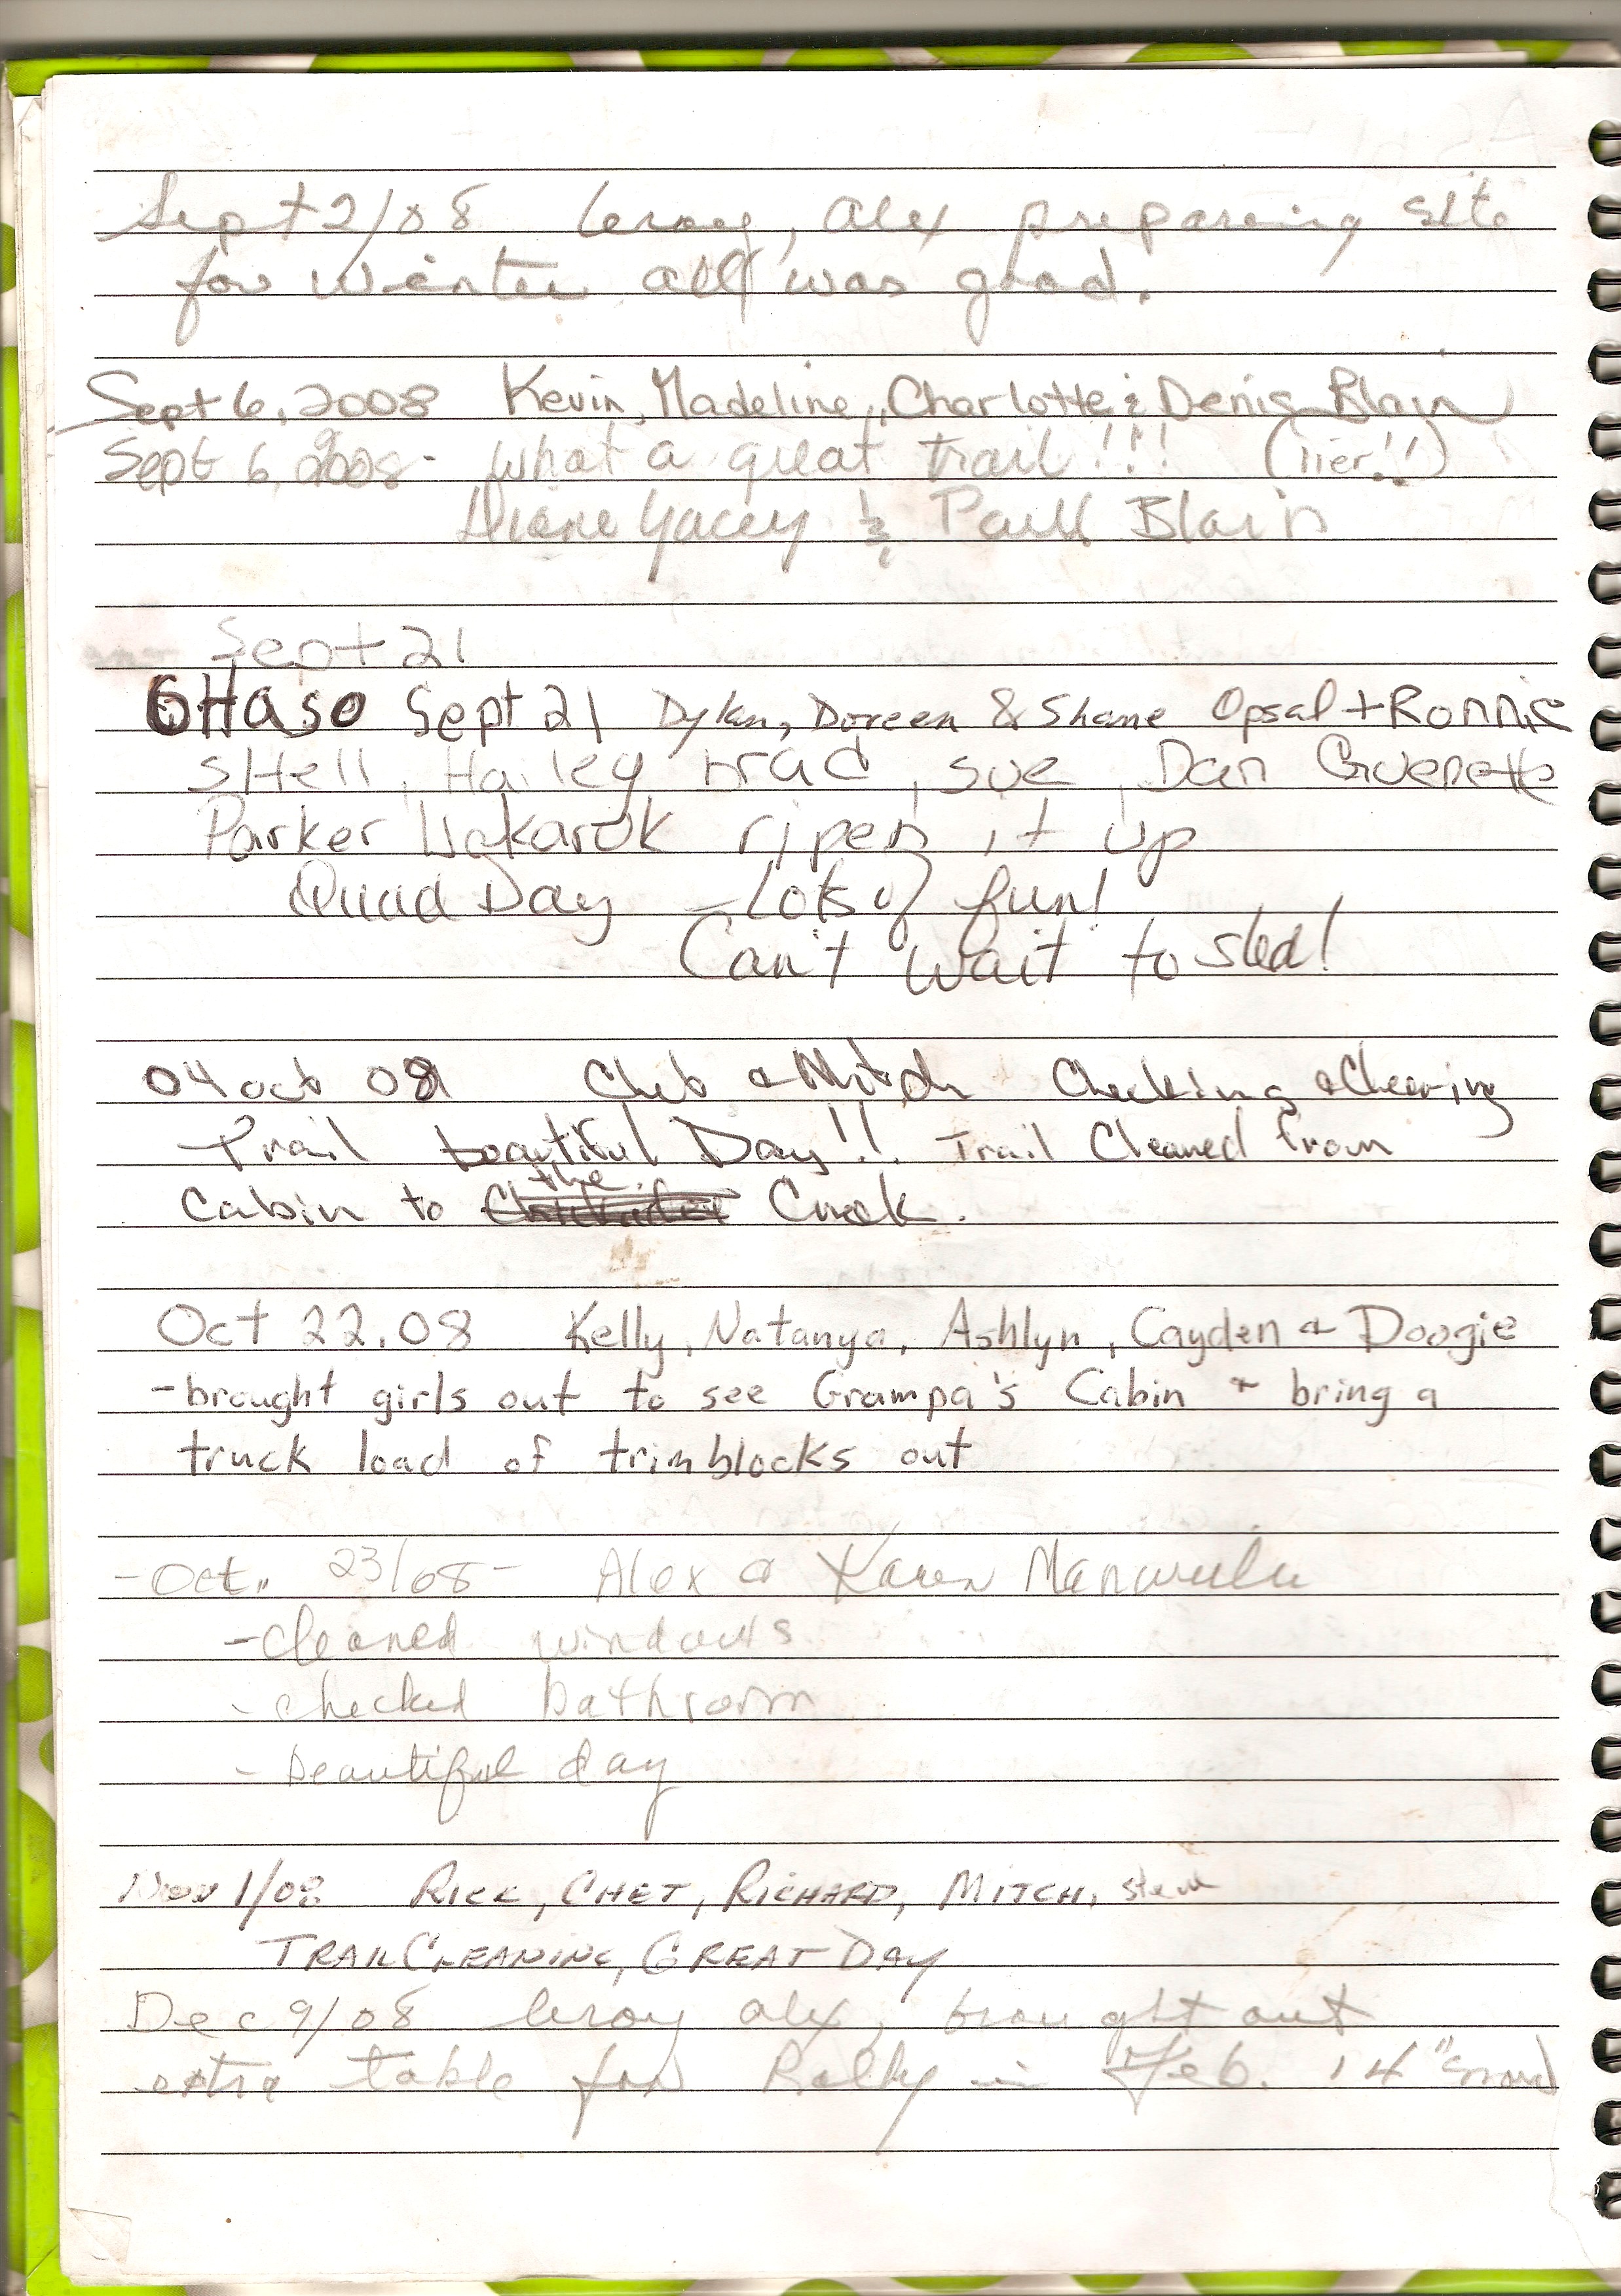 Sept 2/08 Leroy, Alex preparing site
for winter all was good.
Sept 6, 2008 Kevin, Madeline, Charlotte & Denis Blain
Sept 6, 2008 - What a great trail!!! (Tier!!)
Diane Yacey & Paul Blain
Sept 21
Sept 21 Dylan, Doreen & Shane Opsal + Ronnie
SHell, Hailey Brad, Sue, Dan Guenette
Parker ripen it up
Quad Day - Lots of fun!
Can't wait to sled!
04 Oct 08 & Mitch Checking & Clearing
Trail beautiful Day!! Trail Cleaned from
Cabin to the Creek.
Oct 22, 08 Kelly, Natanya, Ashlyn, Cayden & Doogie
- brought girls out to see Grampa's Cabin & bring a
truck load of trimblocks out
- Oct. 23/08 - Alex & Karen
- cleaned windows
- checked bathroom
- beautiful day
Nov 1/08 RICK, CHET, RICHARD, MITCH, Steve
TRAIL CLEANING, GREAT DAY
Dec 9/08 Leroy Alex, brought out
extra table for Rally in Feb. 14"